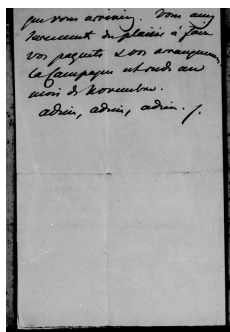 que vous arriviez. Vous aurez
surement du plaisir à faire
vos paquets & vos arrangemens
la Campagne est rude au
mois de Novembre.
adieu, adieu, adieu.